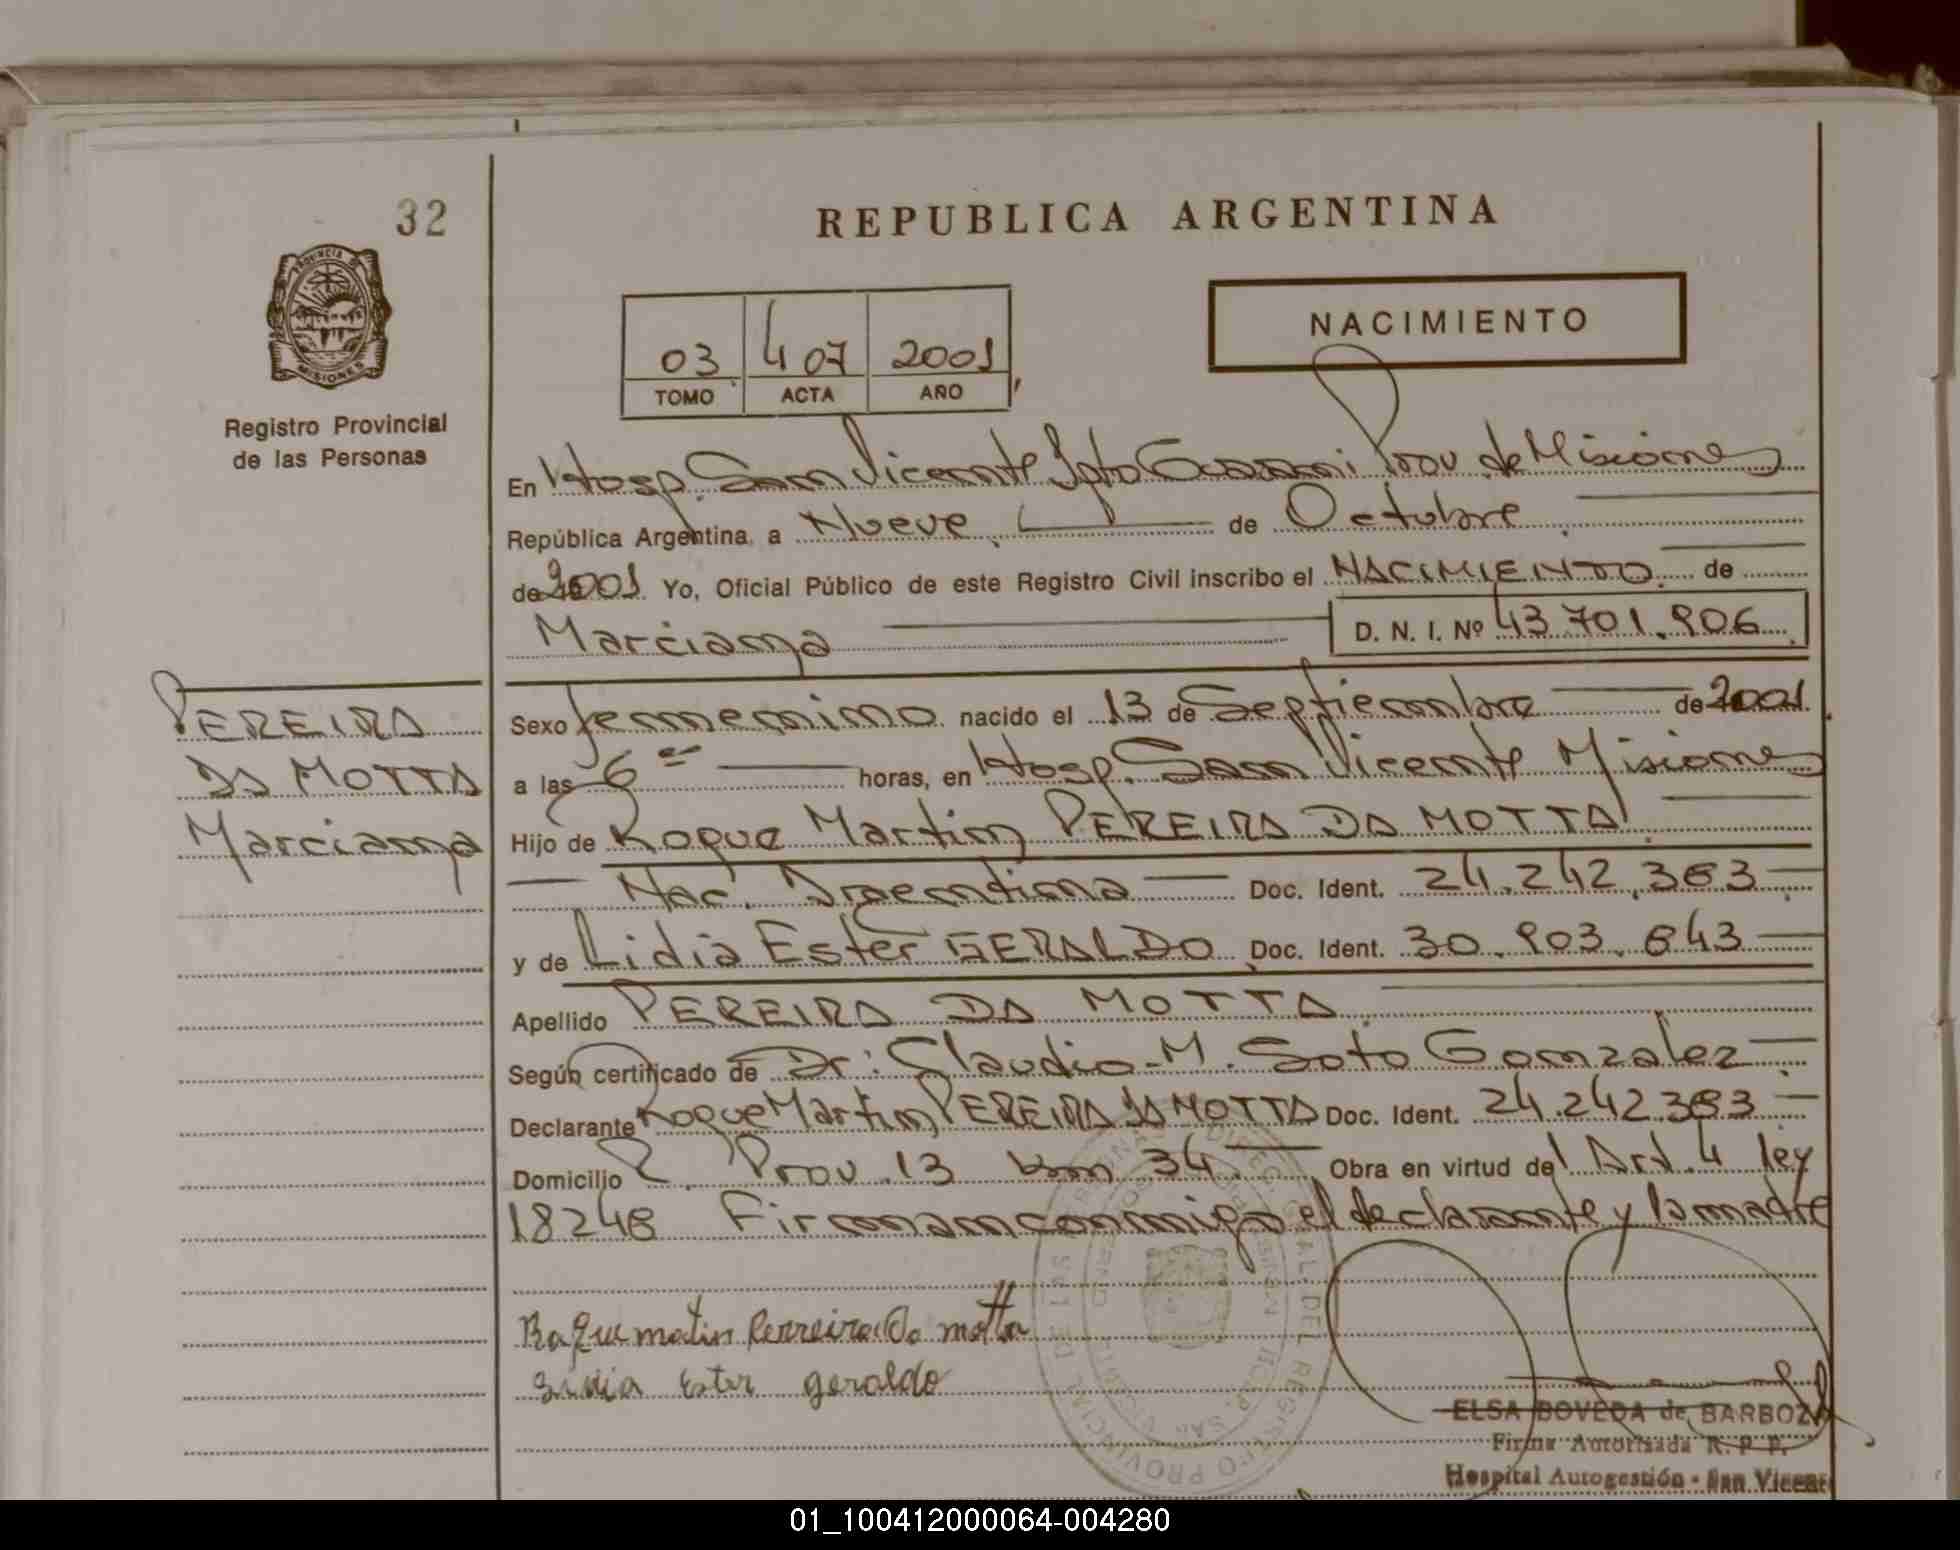 32
REPUBLICA ARGENTINA
PROVINCIA DE
MISIONES
Registro Provincial
de las Personas
03 407 2001
TOMO ACTA AÑO
NACIMIENTO
En Hosp. San Vicente Dpto Guarani Prov. de Misiones
República Argentina, a Nueve de Octubre
de 2001 Yo, Oficial Público de este Registro Civil inscribo el NACIMIENTO de
Marciana D. N. I. Nº 43.701.906
PEREIRA
DA MOTTA
Marciana
Sexo femenino nacido el 13 de Septiembre de 2001
a las 6 horas, en Hosp. San Vicente Misiones
Hijo de Roque Martin PEREIRA DA MOTTA
Nac. Argentina Doc. Ident. 24.242.383
y de Lidia Ester GERALDO Doc. Ident. 30.903.843
Apellido PEREIRA DA MOTTA
Según certificado de Dr: Claudio M. Soto Gonzalez
Declarante Roque Martin PEREIRA DA MOTTA Doc. Ident. 24.242.383
Domicilio R. Prov. 13 km 34 Obra en virtud del Art. 4 ley
18248 Firman conmigo el declarante y la madre
Roque matin Perreira Da motta
Lidia Ester geraldo
ELSA BOVEDA de BARBOZA
Firma Autorizada R. P. P.
Hospital Autogestión - San Vicente
01_100412000064-004280